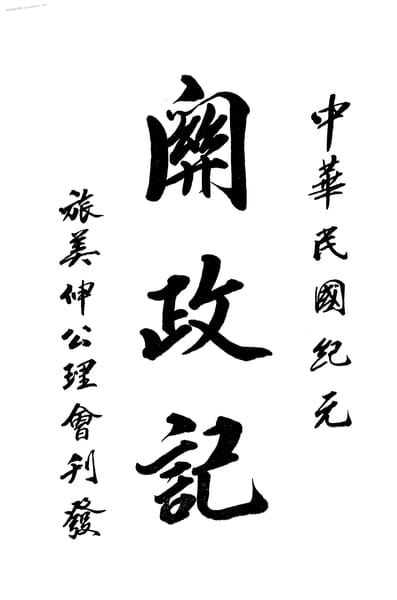 中華民國紀元
關政記
旅美伸公理會刊發